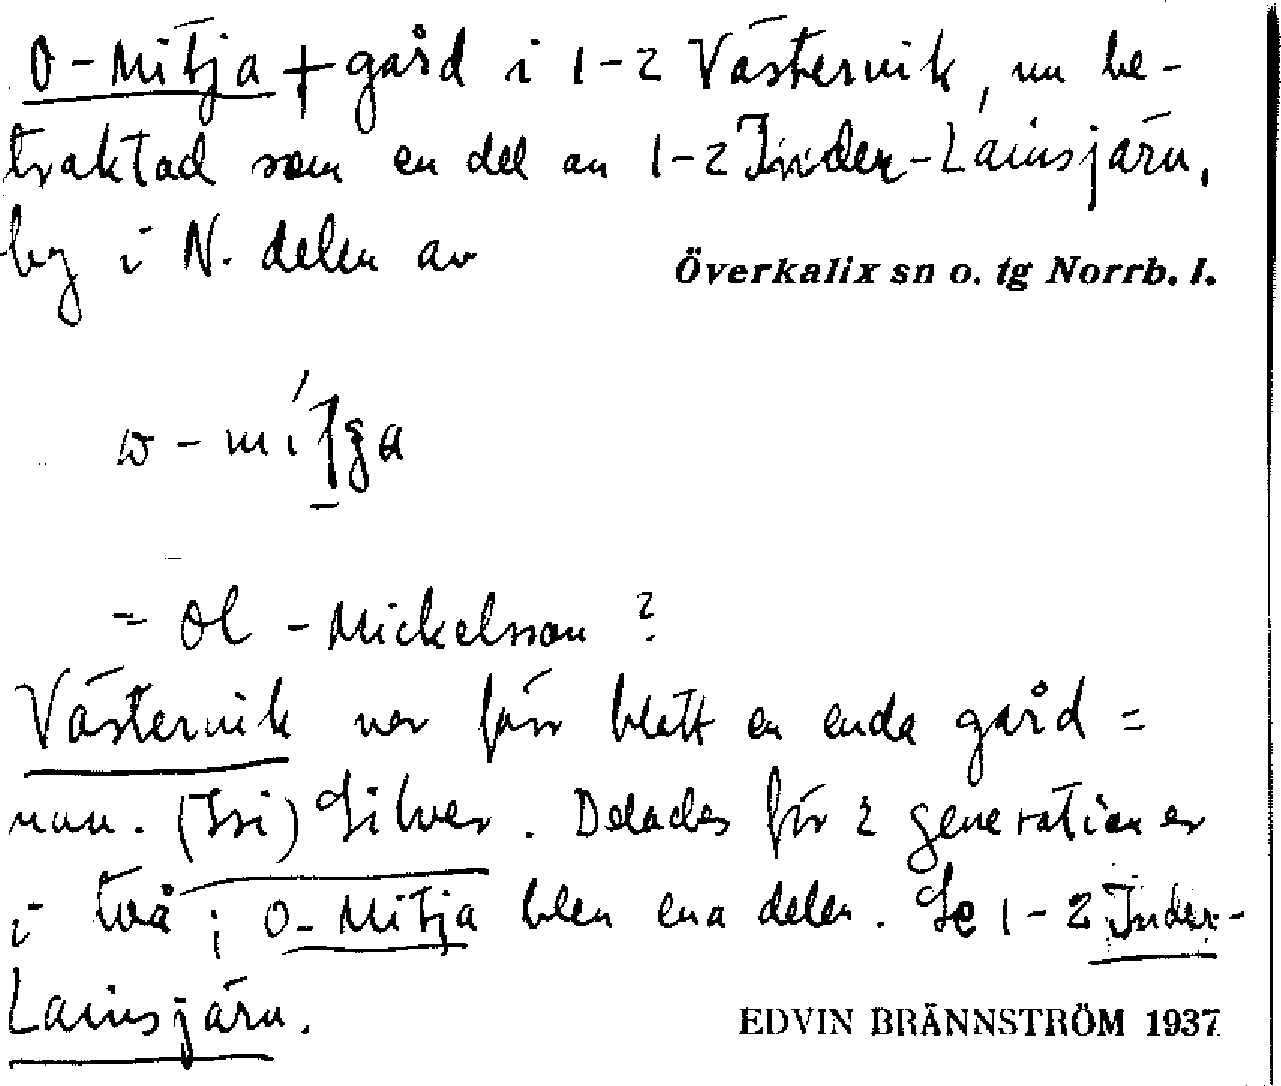 O-Mitja + gård i 1-2 Västervik, nu be-
traktad som en del av 1-2 Inder-Lainsjärv,
by i N. delen av
Överkalix sn o. tg Norrb. l.
= Ol-Mickelsson?
Västervik var förr blott en enda gård =
num. (Isi) Silver. Delades för 2 generationer
i två; O-Mitja blev ena delen. Se 1-2 Inder-
Lainsjärv.
EDVIN BRÄNNSTRÖM 1937